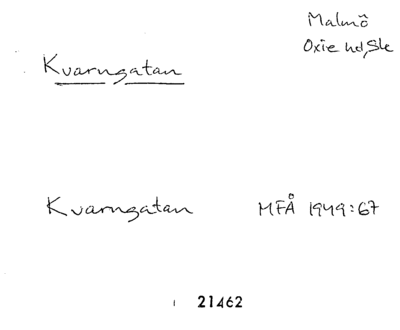 Malmö
Oxie hd, Ske
Kvarngatan
Kvarngatan MFÅ 1949:67
21462